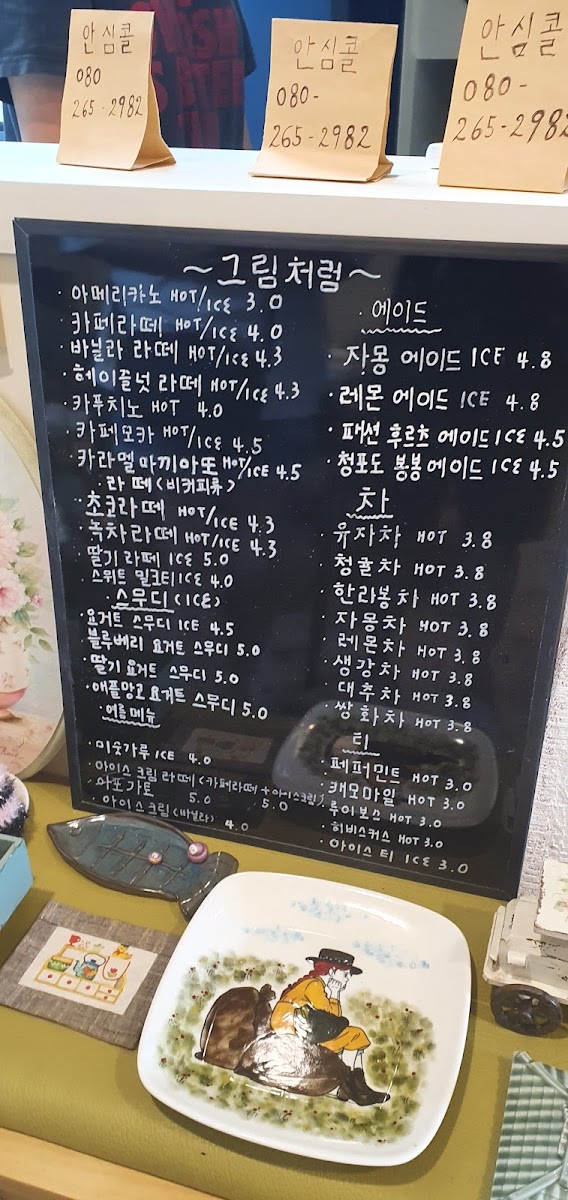 안심콜
080
265-2982
안심콜
080-
265-2982
안심콜
080-
265-2982
~그림처럼~
· 아메리카노 HOT/ICE 3.0
· 카페라떼 HOT/ICE 4.0
· 바닐라 라떼 HOT/ICE 4.3
· 헤이즐넛 라떼 HOT/ICE 4.3
· 카푸치노 HOT 4.0
· 카페모카 HOT/ICE 4.5
· 카라멜 마끼아또 HOT/ICE 4.5
· 라떼 (비커피류)
· 초코라떼 HOT/ICE 4.3
· 녹차라떼 HOT/ICE 4.3
· 딸기 라떼 ICE 5.0
· 스위트 밀크티 ICE 4.0
· 스무디 (ICE)
· 요거트 스무디 ICE 4.5
· 블루베리 요거트 스무디 5.0
· 딸기 요거트 스무디 5.0
· 애플망고 요거트 스무디 5.0
· 여름메뉴
· 미숫가루 ICE 4.0
· 아이스크림 라떼 (카페라떼+아이스크림) 5.0
· 아포가토 5.0
· 아이스크림 (바닐라) 4.0
· 에이드
· 자몽 에이드 ICE 4.8
· 레몬 에이드 ICE 4.8
· 패션 후르츠 에이드 ICE 4.5
· 청포도 봉봉 에이드 ICE 4.5
차
· 유자차 HOT 3.8
· 청귤차 HOT 3.8
· 한라봉차 HOT 3.8
· 자몽차 HOT 3.8
· 레몬차 HOT 3.8
· 생강차 HOT 3.8
· 대추차 HOT 3.8
· 쌍화차 HOT 3.8
티
· 페퍼민트 HOT 3.0
· 캐모마일 HOT 3.0
· 루이보스 HOT 3.0
· 히비스커스 HOT 3.0
· 아이스 티 ICE 3.0